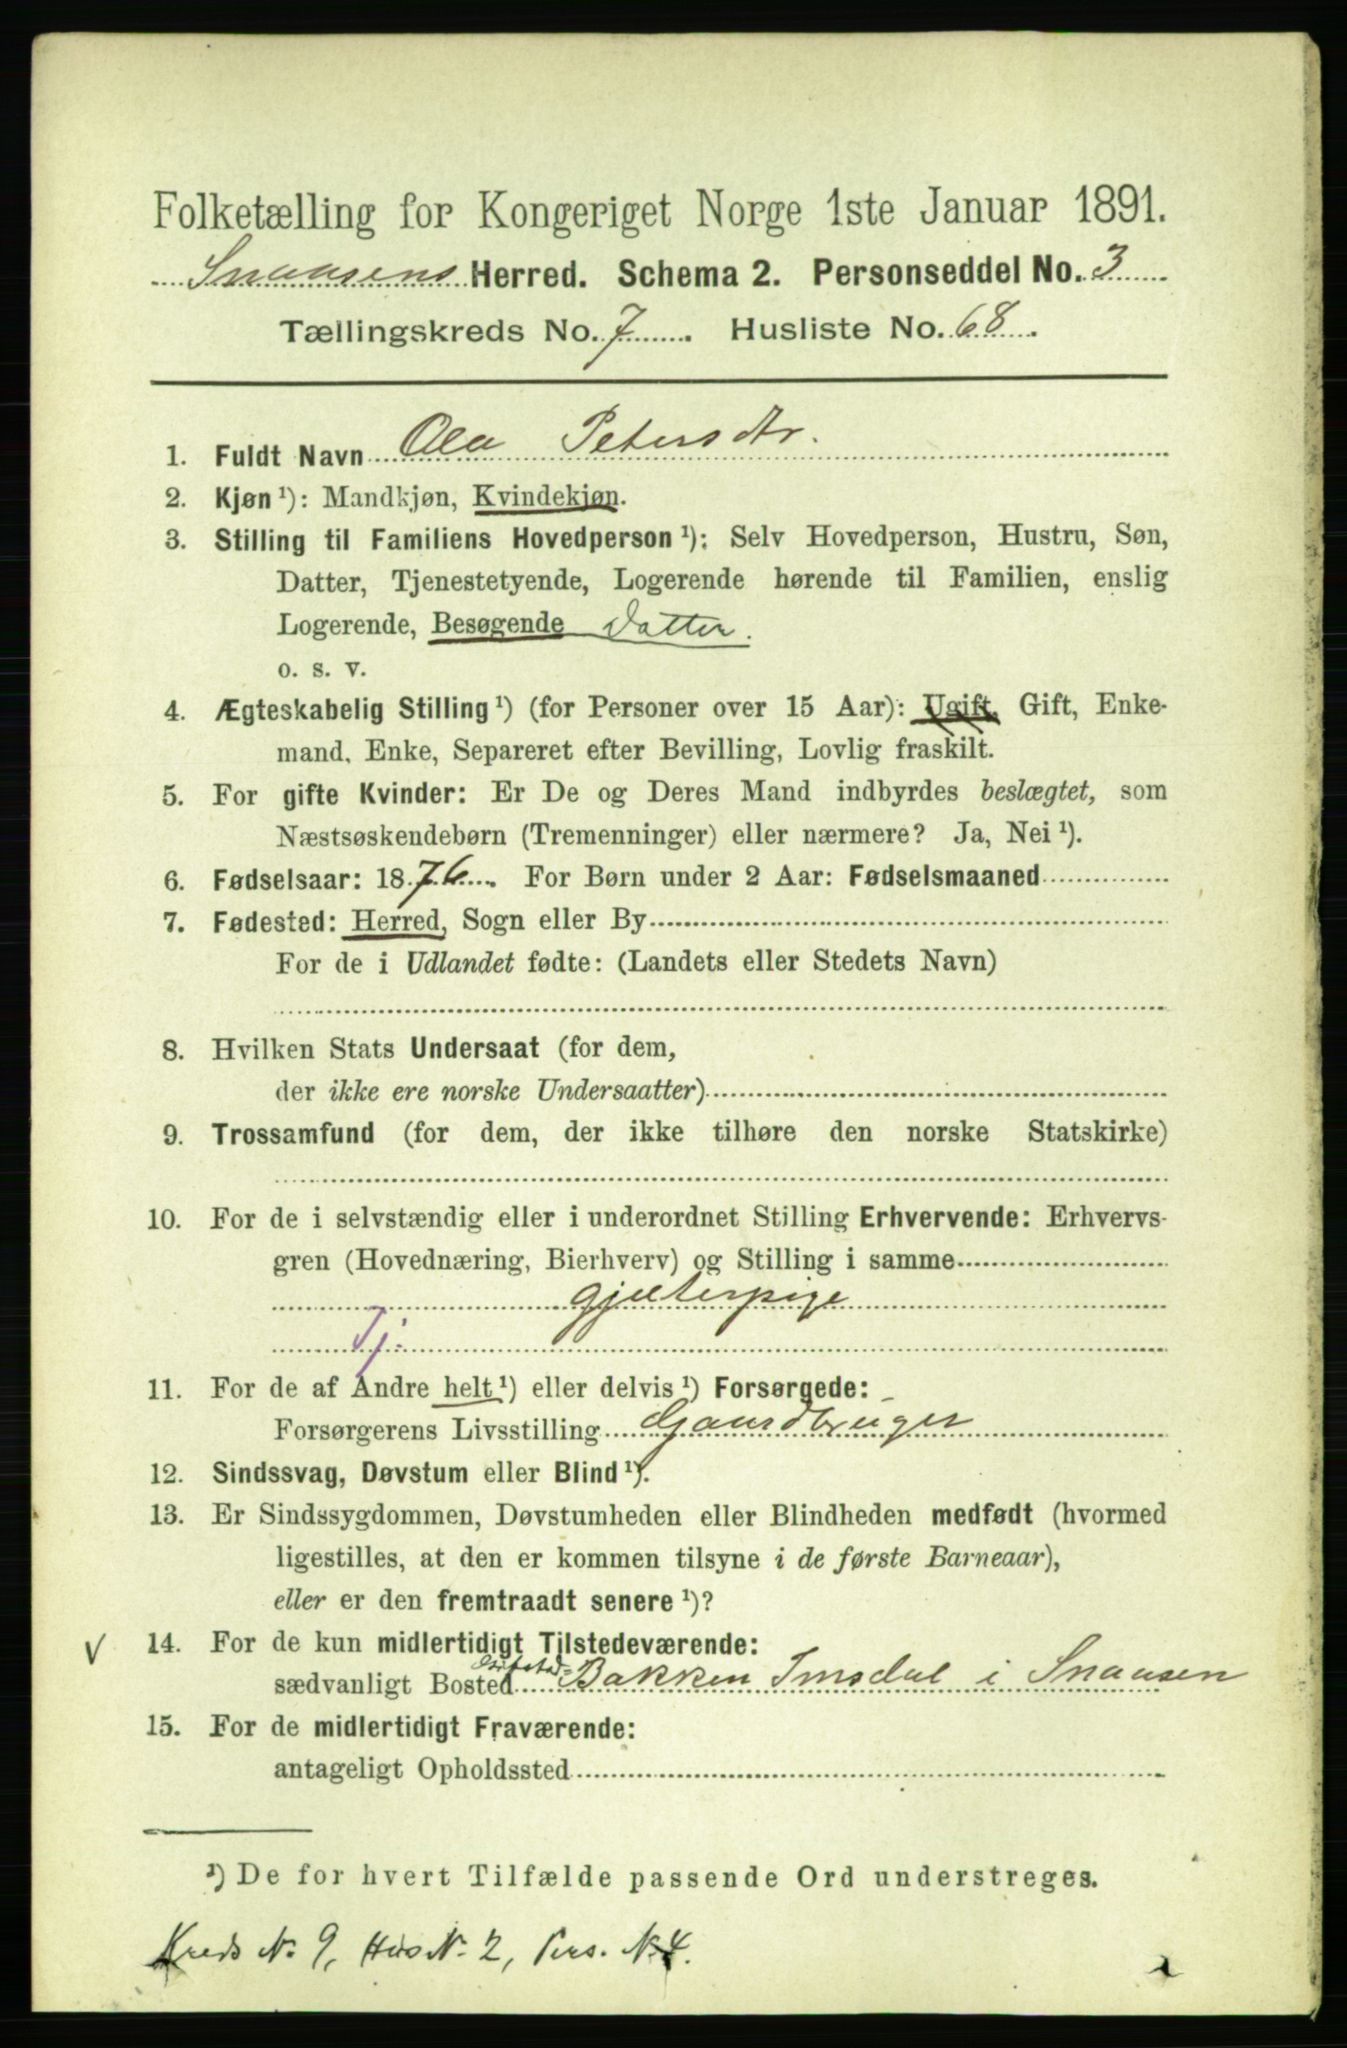 Folketælling for Kongeriget Norge 1ste Januar 1891.
Snaasens Herred. Schema 2. Personseddel No. 3
Tællingskreds No. 7. Husliste No. 68.
1. Fuldt Navn Petersdtr.
2. Kjøn ¹): Mandkjøn, Kvindekjøn.
3. Stilling til Familiens Hovedperson ¹): Selv Hovedperson, Hustru, Søn,
Datter, Tjenestetyende, Logerende hørende til Familien, enslig
Logerende, Besøgende Datter.
o. s. v.
4. Ægteskabelig Stilling ¹) (for Personer over 15 Aar): Ugift, Gift, Enke-
mand, Enke, Separeret efter Bevilling, Lovlig fraskilt.
5. For gifte Kvinder: Er De og Deres Mand indbyrdes beslægtet, som
Næstsøskendebørn (Tremenninger) eller nærmere? Ja, Nei ¹).
6. Fødselsaar: 1876. For Børn under 2 Aar: Fødselsmaaned
7. Fødested: Herred, Sogn eller By
For de i Udlandet fødte: (Landets eller Stedets Navn)
8. Hvilken Stats Undersaat (for dem,
der ikke ere norske Undersaatter)
9. Trossamfund (for dem, der ikke tilhøre den norske Statskirke)
10. For de i selvstændig eller i underordnet Stilling Erhvervende: Erhvervs-
gren (Hovednæring, Bierhverv) og Stilling i samme
gjæterpige
Tj.
11. For de af Andre helt ¹) eller delvis ¹) Forsørgede:
Forsørgerens Livsstilling Gaardbruger
12. Sindssvag, Døvstum eller Blind ¹).
13. Er Sindssygdommen, Døvstumheden eller Blindheden medfødt (hvormed
ligestilles, at den er kommen tilsyne i de første Barneaar),
eller er den fremtraadt senere ¹)?
V 14. For de kun midlertidigt Tilstedeværende:
sædvanligt Bosted Bakken Imsdal i Snaasen
15. For de midlertidigt Fraværende:
antageligt Opholdssted
¹) De for hvert Tilfælde passende Ord understreges.
Kreds No. 9, Hus No. 2, Pers. No. 4.